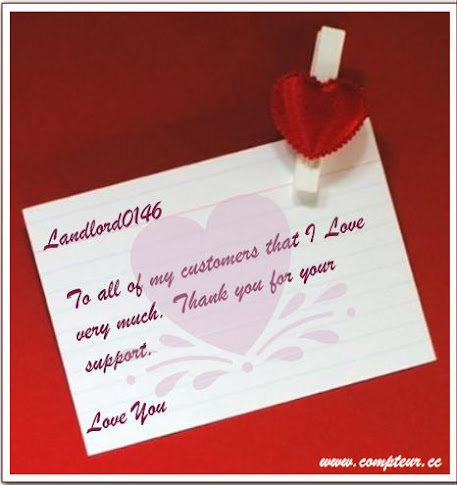 Landlord0146
To all of my customers that I Love
very much. Thank you for your
support.
Love You
www.compteur.cc